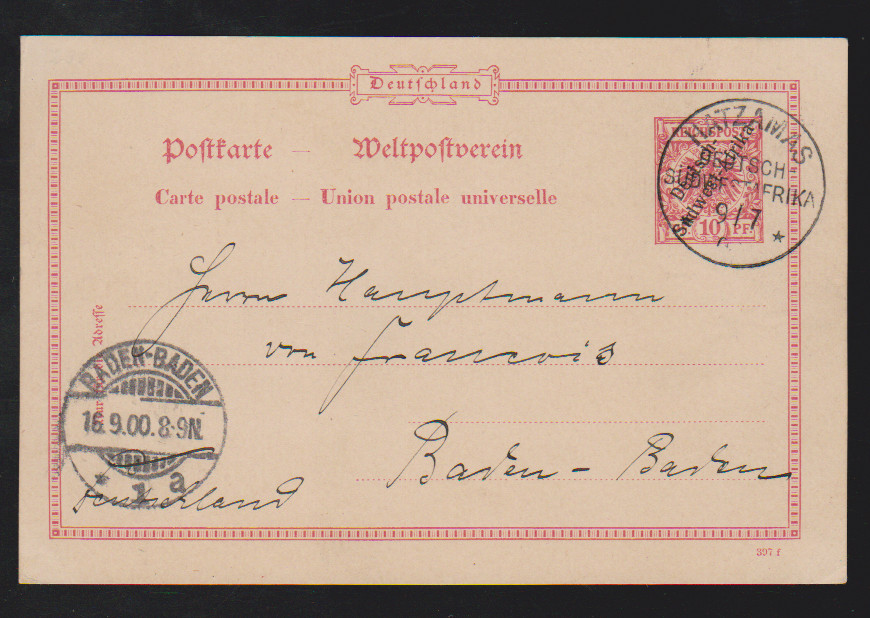 Deutschland
Postkarte — Weltpostverein
Carte postale — Union postale universelle
REICHSPOST
10 PF.
Deutsch-
Südwest-Afrika
DEUTSCH-
SÜDWESTAFRIKA
9/7
Herrn Hauptmann
von Francois
Baden-Baden
Deutschland
Nur für die Adresse
BADEN-BADEN
16.9.00.8-9N.
* 1 a
397 f